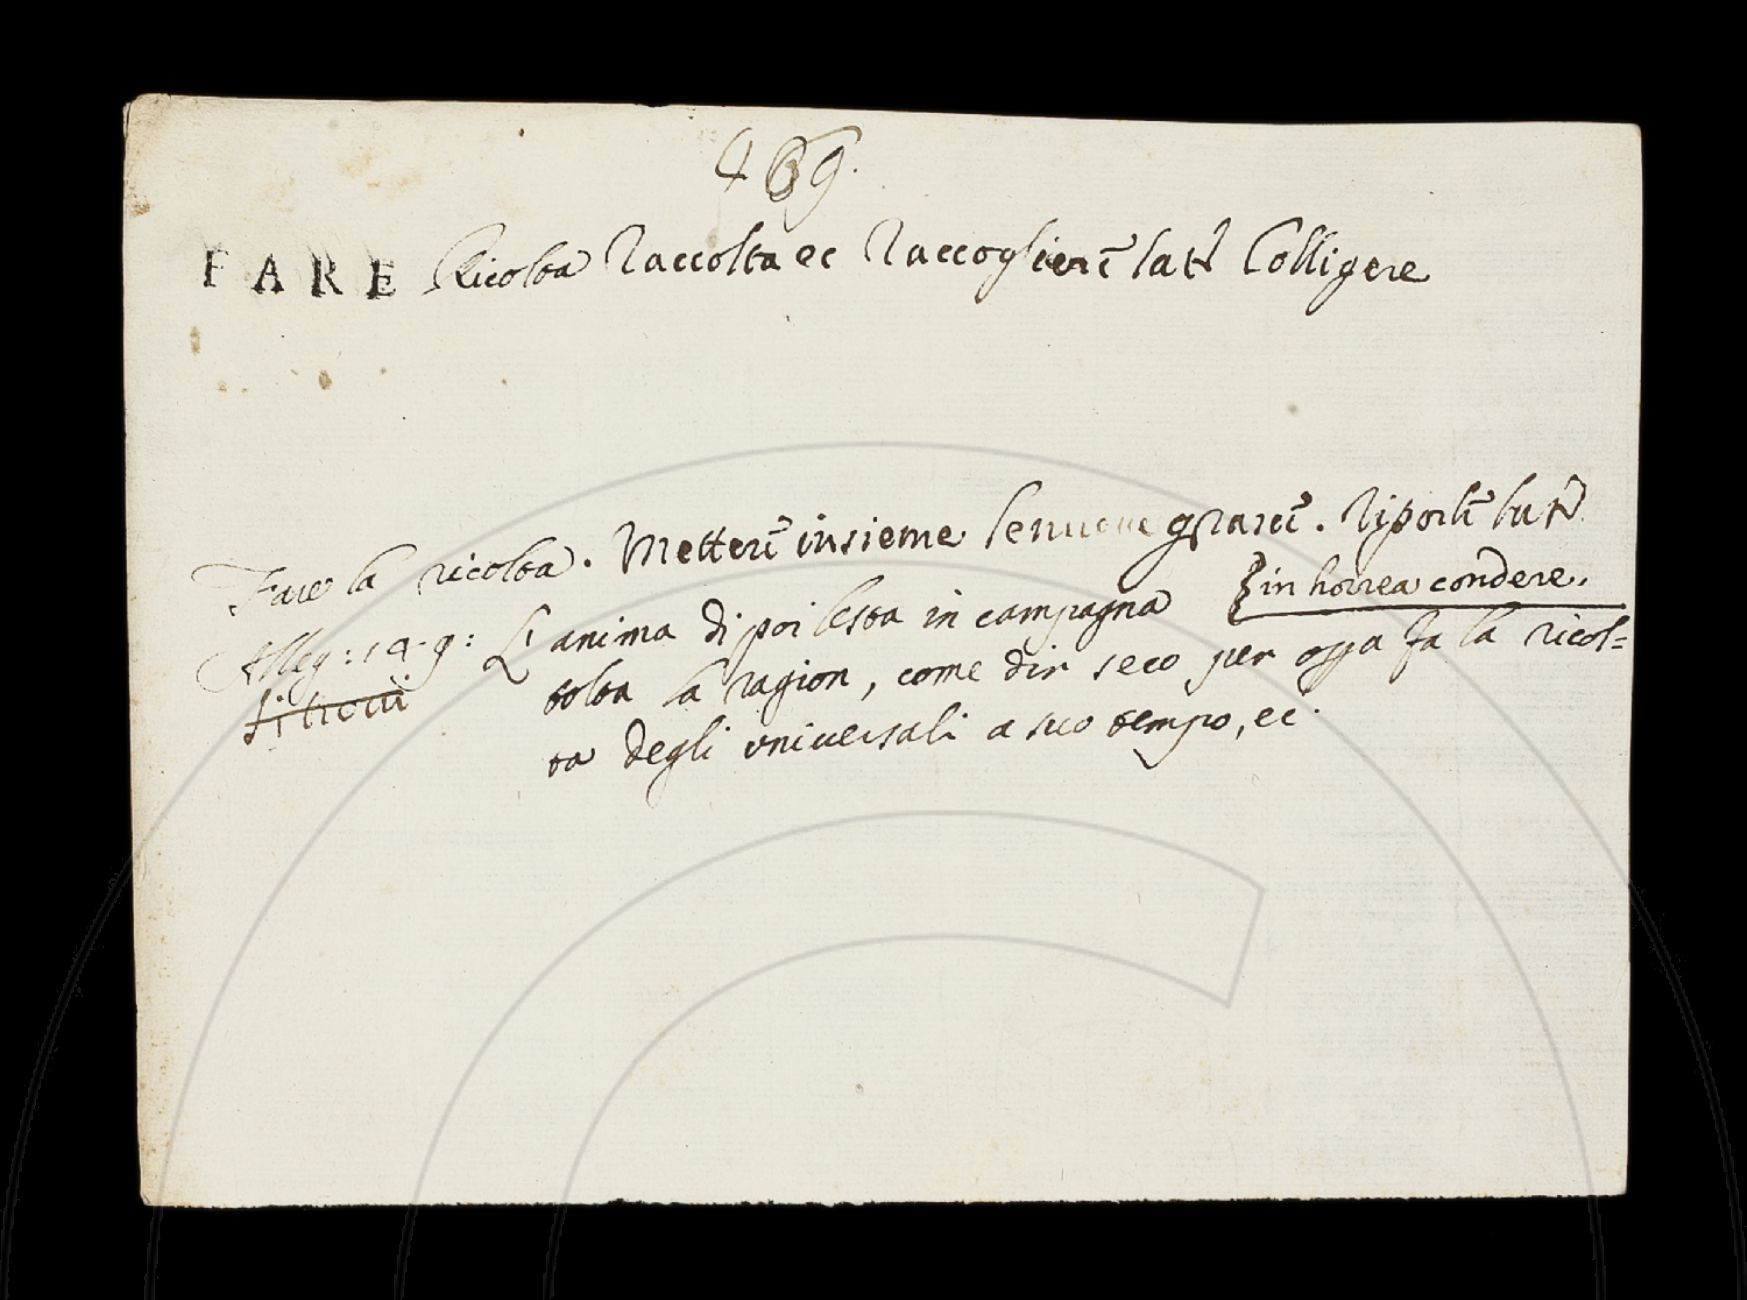 469.
FARE Ricolta Raccolta ec Raccogliere lat Colligere
Fare la ricolta. Mettere insieme le grasce. Riporle lat
{in horrea condere.
Alleg: 149: L'anima di poi lesta in campagna
tolta la ragion, come dir seco per oppa fa la ricol=
ta degli universali a suo tempo, ec.